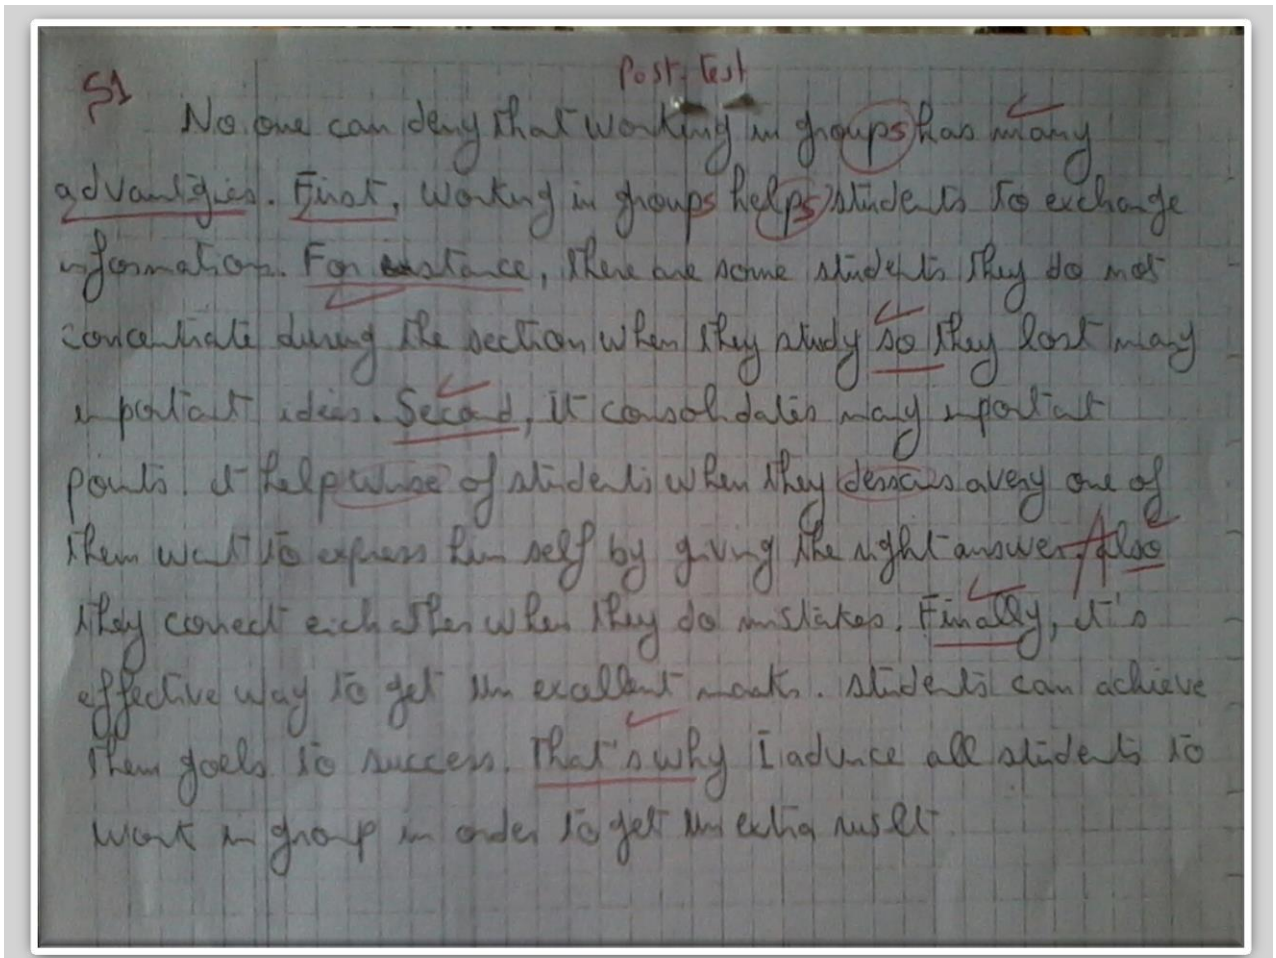 S1
Post-test
No one can deny that working in groups has many
advantigies. First, working in groups helps students to exchange
information. For instance, there are some students they do not
concentrate during the section when they study so they lost many
importat ideas. Second, it consolidates many importat
points. it help of students when they desscus avery one of
them want to express him self by giving the right answer. Also
they correct eich other when they do mistakes. Finally, it's
effective way to get un excellent marks. students can achieve
them goels to success. That's why I advice all students to
work in group in order to get un extra result.